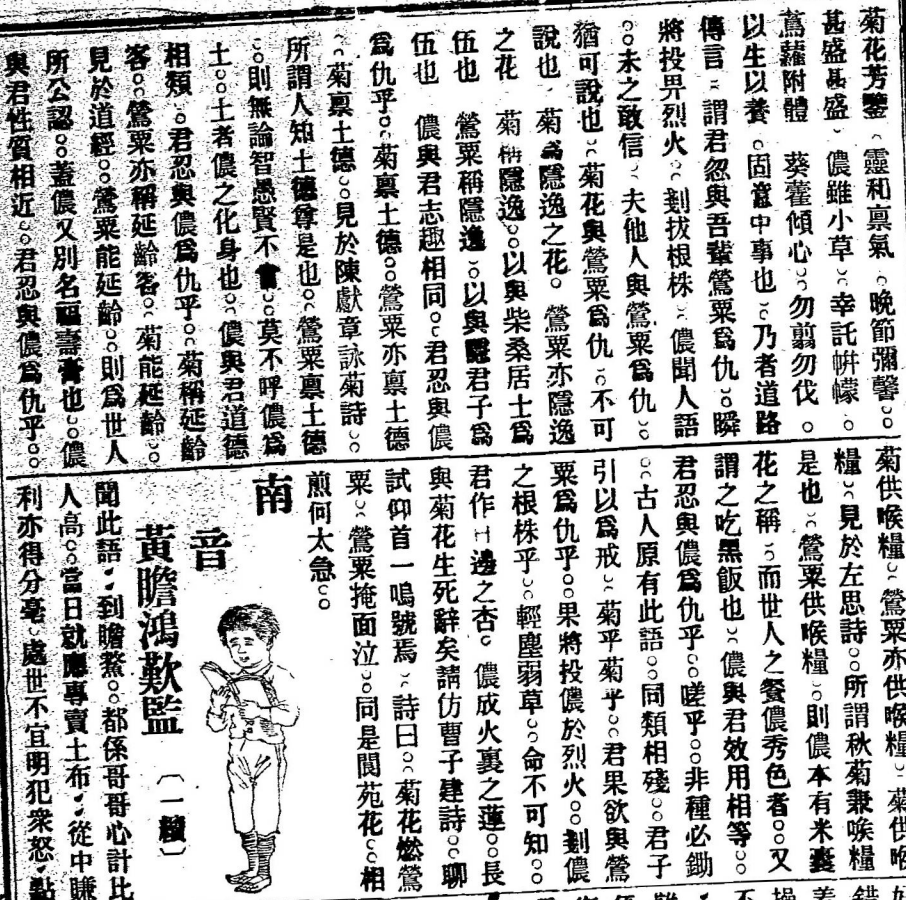 菊花芳鑒、靈和禀氣。晚節彌馨。
甚盛甚盛、儂雖小草。幸託帡幪。
蔦蘿附體　葵藿傾心。勿翦勿伐。
以生以養。固意中事也。乃者道路
傳言。謂君忽與吾輩鶯粟爲仇。瞬
將投畀烈火。剗拔根株。儂聞人語
。未之敢信。夫他人與鶯粟爲仇。
猶可說也。菊花與鶯粟爲仇。不可
說也。菊爲隱逸之花。鶯粟亦隱逸
之花　菊稱隱逸。以與柴桑居士爲
伍也　鶯粟稱隱逸。以與君子爲
伍也　儂與君志趣相同。君忍與儂
爲仇乎。菊禀土德。鶯粟亦禀土德
。菊禀土德。見於陳獻章詠菊詩。
所謂人知土德尊是也。鶯粟禀土德
。則無論智愚賢不肖。莫不呼儂爲
土。土者儂之化身也。儂與君道德
相類。君忍與儂爲仇乎。菊稱延齡
客。鶯粟亦稱延齡客。菊能延齡。
見於道經。鶯粟能延齡。則爲世人
所公認。蓋儂又別名福壽膏也。儂
與君性質相近。君忍與儂爲仇乎。
菊供喉糧。鶯粟亦供喉糧。菊供喉
糧。見於左思詩。所謂秋菊兼喉糧
是也。鶯粟供喉糧。則儂本有米囊
花之稱。而世人之餐儂秀色者。又
謂之吃黑飯也。儂與君效用相等。
君忍與儂爲仇乎。嗟乎。非種必鋤
。古人原有此語。同類相殘。君子
引以爲戒。菊乎菊乎。君果欲與鶯
粟爲仇乎。果將投儂於烈火。剗儂
之根株乎。輕塵弱草。命不可知。
君作日邊之杏。儂成火裏之蓮。長
與菊花生死辭矣請仿曹子建詩。聊
試仰首一嗚號焉。詩曰。菊花燃鶯
粟。鶯粟掩面泣。同是閬苑花。相
煎何太急。
南音
黃瞻鴻歎監（一續）
聞此語、到瞻鰲。都係哥哥心計比
人高。當日就應專賣土布、從中賺
利亦得分毫、處世不宜明犯衆怒、點